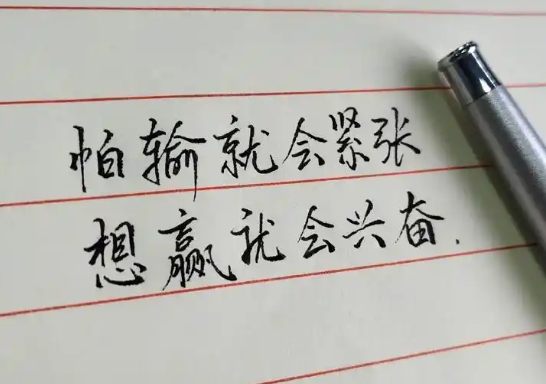 怕输就会紧张
想赢就会兴奋.